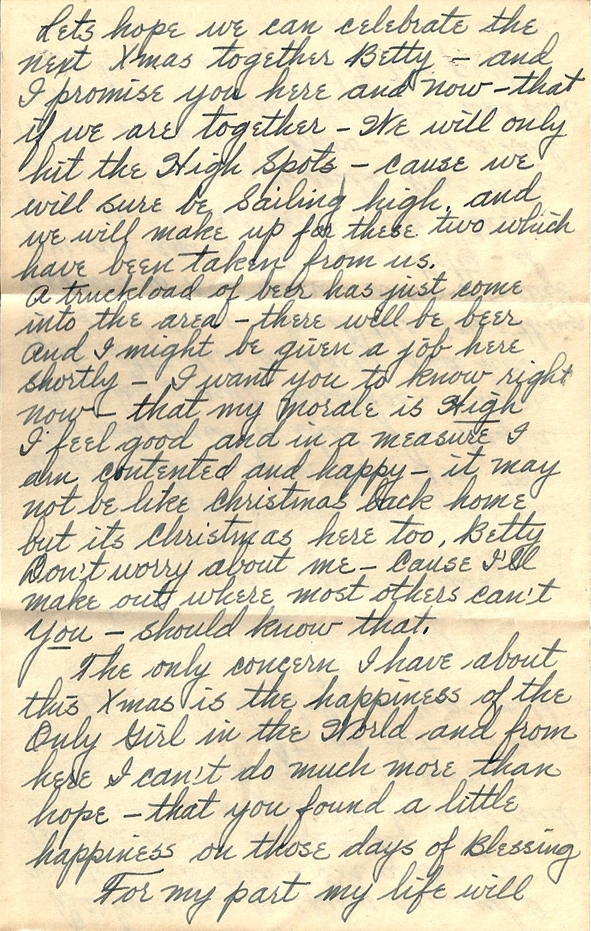 Lets hope we can celebrate the
next Xmas together Betty - and
I promise you here and now - that
if we are together - We will only
hit the High Spots - cause we
will sure be Sailing high, and
we will make up for these two which
have been taken from us.
A truckload of beer has just come
into the area - there will be beer
And I might be given a job here
shortly - I want you to know right
now - that my morale is High
I feel good and in a measure I
am contented and happy - it may
not be like Christmas back home
but its Christmas here too, Betty
Don't worry about me - Cause I'll
make out where most others can't
You - should know that.
The only concern I have about
this Xmas is the happiness of the
Only Girl in the World and from
here I can't do much more than
hope - that you found a little
happiness on those days of Blessing
For my part my life will